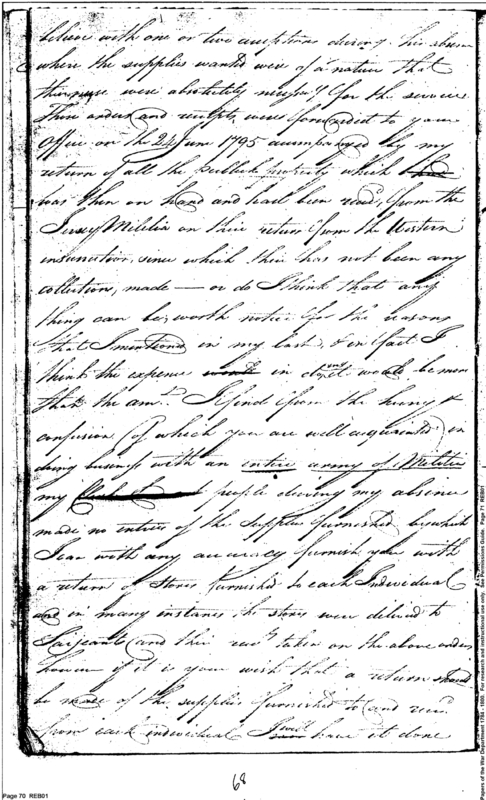 believe with one or two exceptions during his absence
where the supplies wanted were of a nature that
were absolutely necessy for the service
Their orders and receipts were forwarded to your
Office on the 24 June 1795 accompanied by my
return of all the publick property which
was then on hand and had been recd from the
Jersey Militia on their return from the Western
insurrection, since which their has not been any
collection, made — or do I think that any
thing can be worth notice for the reasons
that I mentioned in my last, & in fact I
think the expense in would be more
that the amt. I find from the hurry &
confusion (of which you are well acquainted) in
doing business with an entire army of Militia
my people during my absence
made no entries of the supplies furnished by which
I can with any accuracy furnish you with
a return of Stores furnished to each Individual
and in many instances the stores were delivered to
Serjeants and their rects taken on the above orders
however if it is your wish that a return should
be made of the supplies furnished to and recd
from each individual I will have it done
68
Page 70 REB01
Papers of the War Department 1784 - 1800. For research and instructional use only. See Permissions Guide. Page 71 REB01